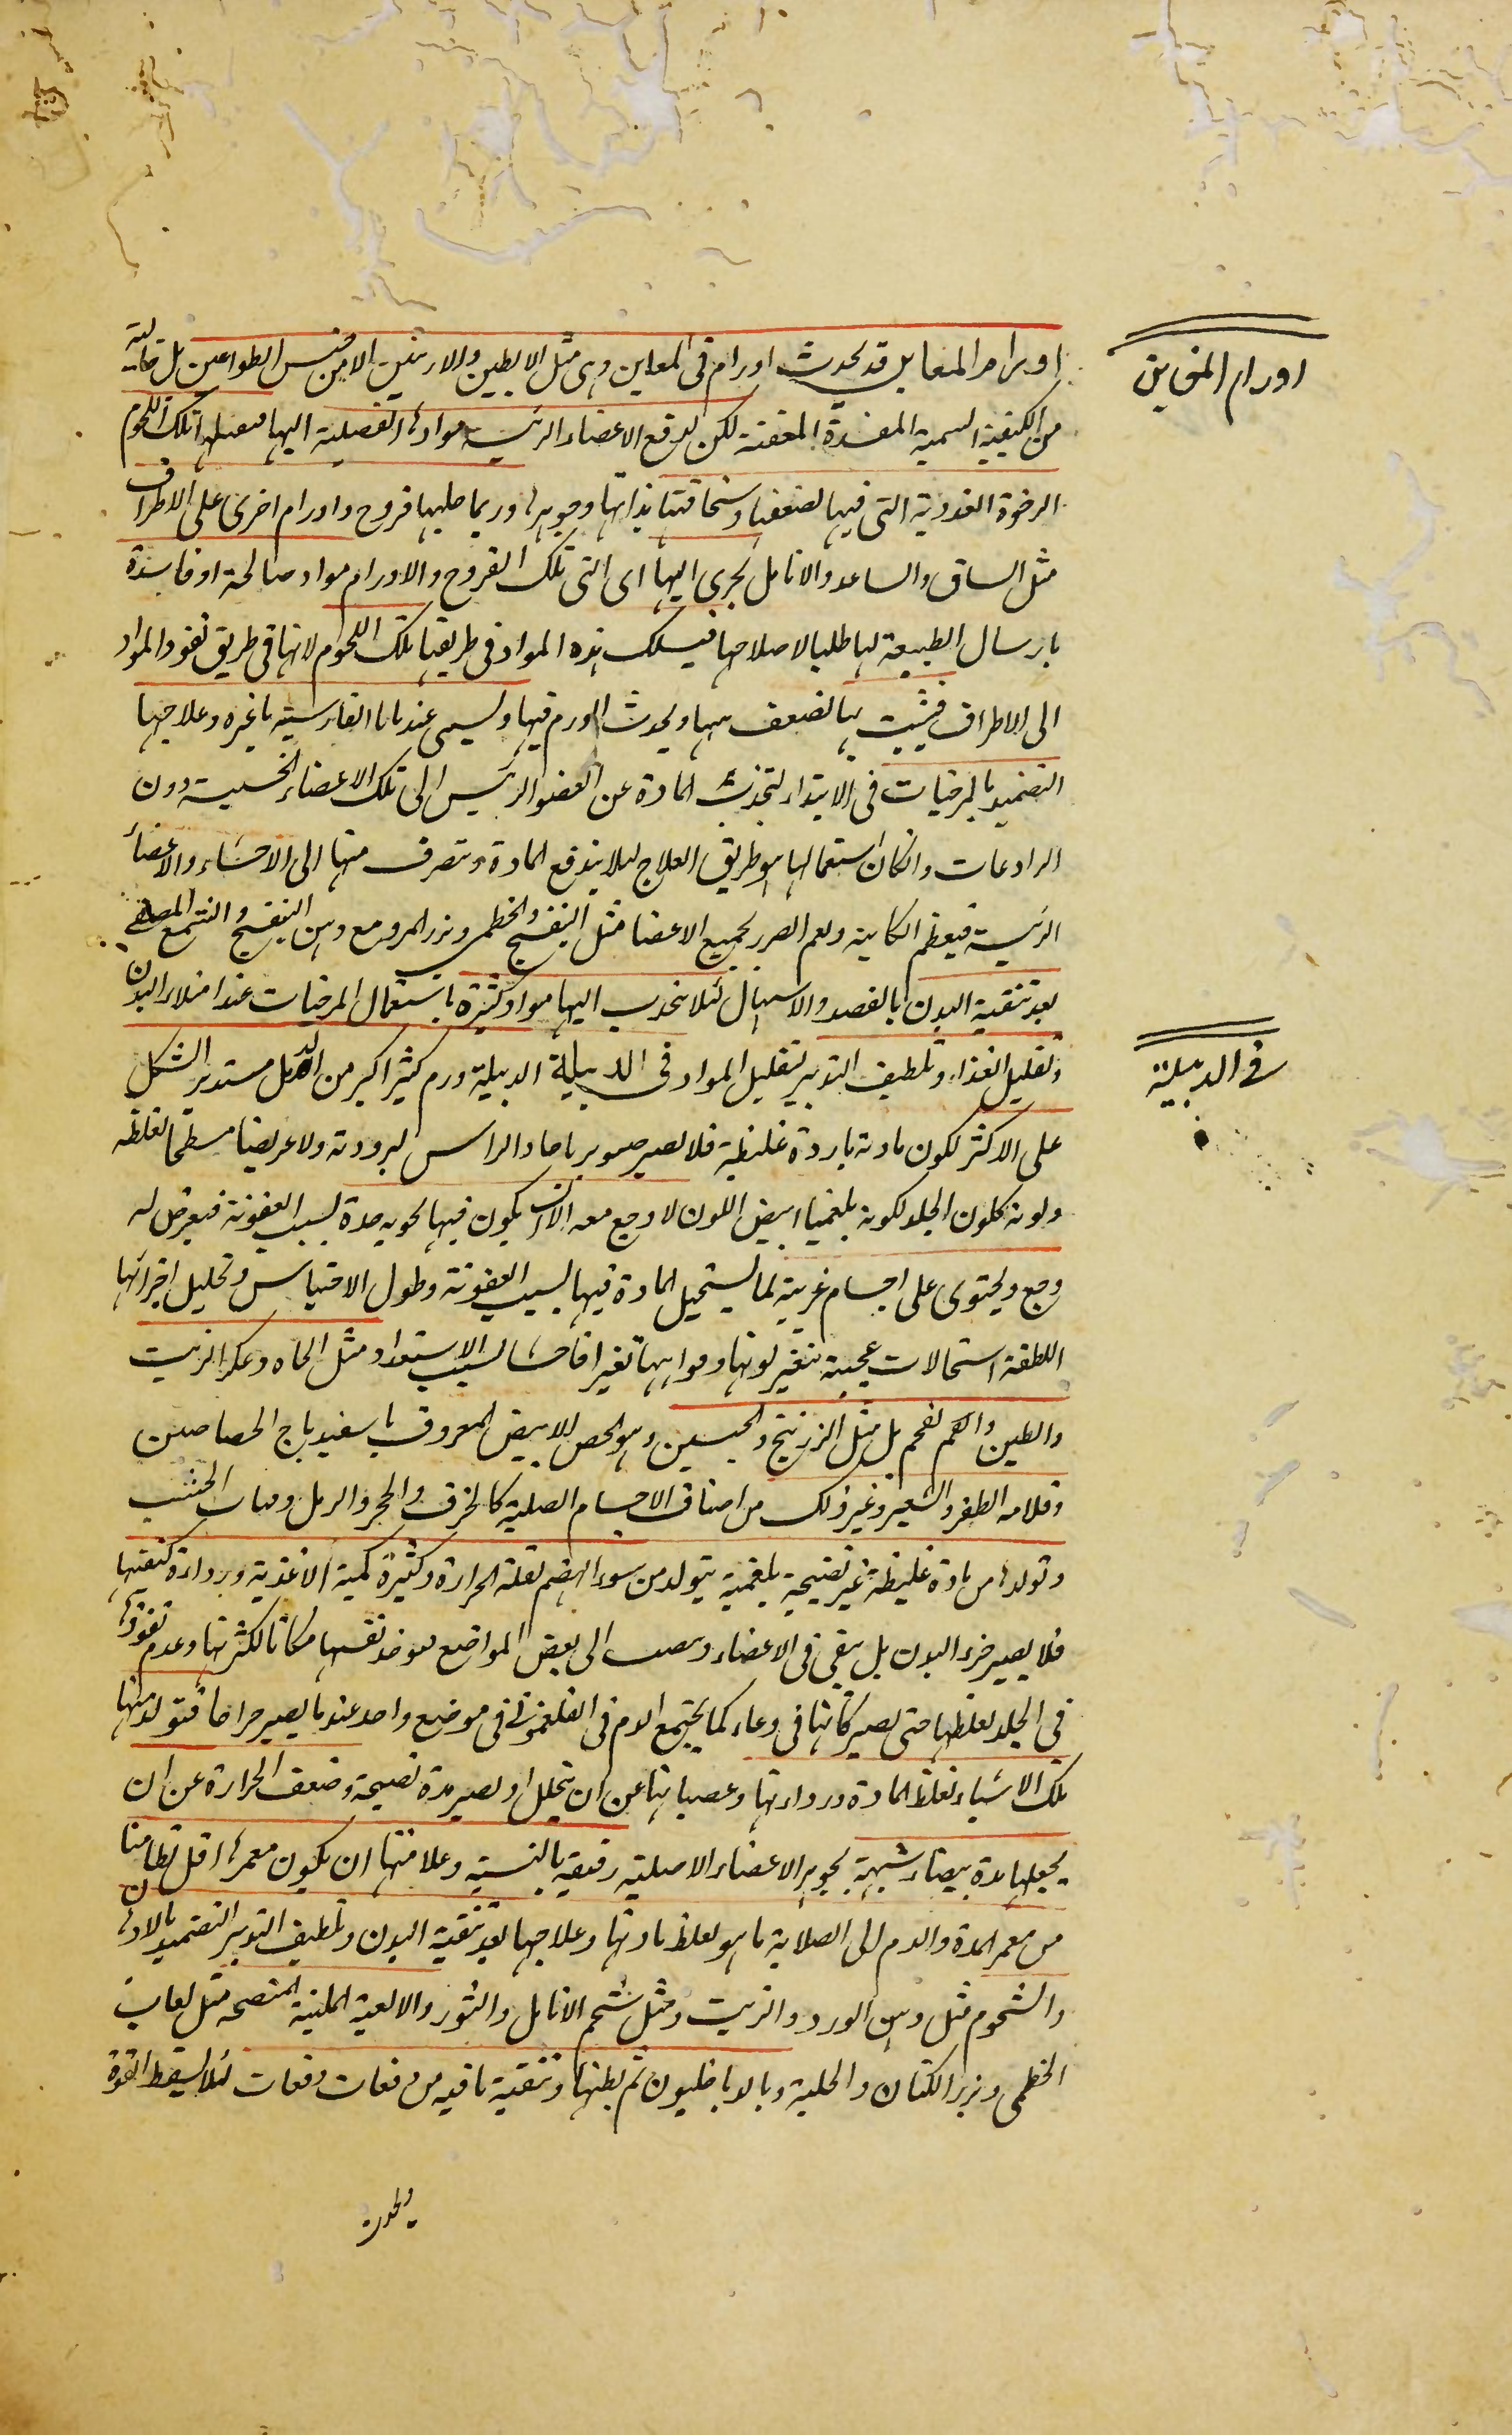 اورام المغابن
اورام المغابن قد يحدث اورام فى المغابن وهى مثل الابطين والاربتين الا من جنس الطواعين بل خالية
من الكيفية السمية المفسدة المعفنة لكن لدفع الاعضاء الرئيسة موادها الفضلية اليها تلك اللحوم
الرخوة الغددية التى فيها لضعفها وسخافتها بذاتها وجوهرها وربما جلبها قروح واورام اخرى على الاطراف
مثل الساق والساعد والانامل يجرى اليها اى الى تلك القروح والاورام مواد صالحة او فاسدة
بارسال الطبيعة لها طلبا لاصلاحها فيسلك هذه المواد فى طريقها تلك اللحوم لانها فى طريق نفوذ المواد
الى الاطراف فيثبت بها لضعف بها ويحدث الورم فيها ويسمى عندنا بالفارسية باغره وعلاجها
التضميد بالمرخيات فى الابتداء لتجذب المادة عن العضو الرئيس الى تلك الاعضاء الخسيسة دون
الرادعات وان كان استعمالها هو طريق العلاج ليلا يندفع المادة وتصرف منها الى الاحشاء والاعضاء
الرئيسة فيعظم النكاية ويعم الضرر لجميع الاعضا مثل البنفسج والخطمى وبزر المرو مع دهن البنفسج والشمع المصفى
بعد تنقية البدن بالفصد والاسهال لئلا ينجذب اليها مواد كثيرة باستعمال المرخيات عند امتلاء البدن
وتقليل الغذاء وتلطيف التدبير لتقليل المواد فى الدبيلة الدبيلة ورم كثير اكبر من الدمل مستدير الشكل
فى الدبيلة
على الاكثر لكون مادته باردة غليظة فلا يصير صنوبريا حاد الراس لبرودته ولا عريضا مسطحا لغلظه
ولونه كلون الجلد لكونه بلغميا ابيض اللون لا وجع معه الا ان يكون فيها يحويه مدة لسبب العفونة فيعرض له
وجع ويحتوى على اجسام غريبة لما يستحيل المادة فيها بسبب العفونة وطول الاحتباس وتحليل اجزائها
اللطيفة استحالات عجيبة يتغير لونها وقوامها تغيرا فاحشا لسبب الاستعداد مثل الحماة وعكر الزيت
والطين والفحم بل مثل الزرنيخ والجبسين وهو الجص الابيض المعروف باسفيدباج الجصاصين
وقلامة الظفر والشعير وغير ذلك من اصناف الاجسام الصلبة كالخزف والحجر والرمل وفتات الخشب
وتولدها من مادة غليظة غير نضيجة بلغمية يتولد من سوء الهضم لقلة الحرارة وكثرة كمية الاغذية ورداءة كيفيتها
فلا يصير جزء البدن بل يبقى فى الاعضاء وينصب الى بعض المواضع نفسها مكانا لكثرتها وعدم نفوذها
فى الجلد لغلظها حتى يصير كانها فى وعاء كما يجتمع الدم فى الفلغمونى فى موضع واحد عندما يصير خراجا فتولد منها
تلك الاشياء لغلظ المادة ورداءتها وعصيانها عن ان يتحلل او يصير مدة نضيجة وضعف الحرارة عن ان
يجعلها مدة بيضاء شبيهة بجوهر الاعضاء الاصلية رقيقة بالنسبة وعلامتها ان يكون مغمزها اقل تطامنا
من مغمز المدة والدم الى الصلابة ما هو لغلظ مادتها وعلاجها بعد تنقية البدن وتلطيف التدبير التضميد بالادهان
والشحوم مثل دهن الورد والزيت ومثل شحم الانابل والثور والالعبة الملينة المنضجة مثل لعاب
الخطمى وبزر الكتان والحلبة وبالدياخليون ثم بطها وتنقية ما فيه من دفعات دفعات لئلا يسقط القوة